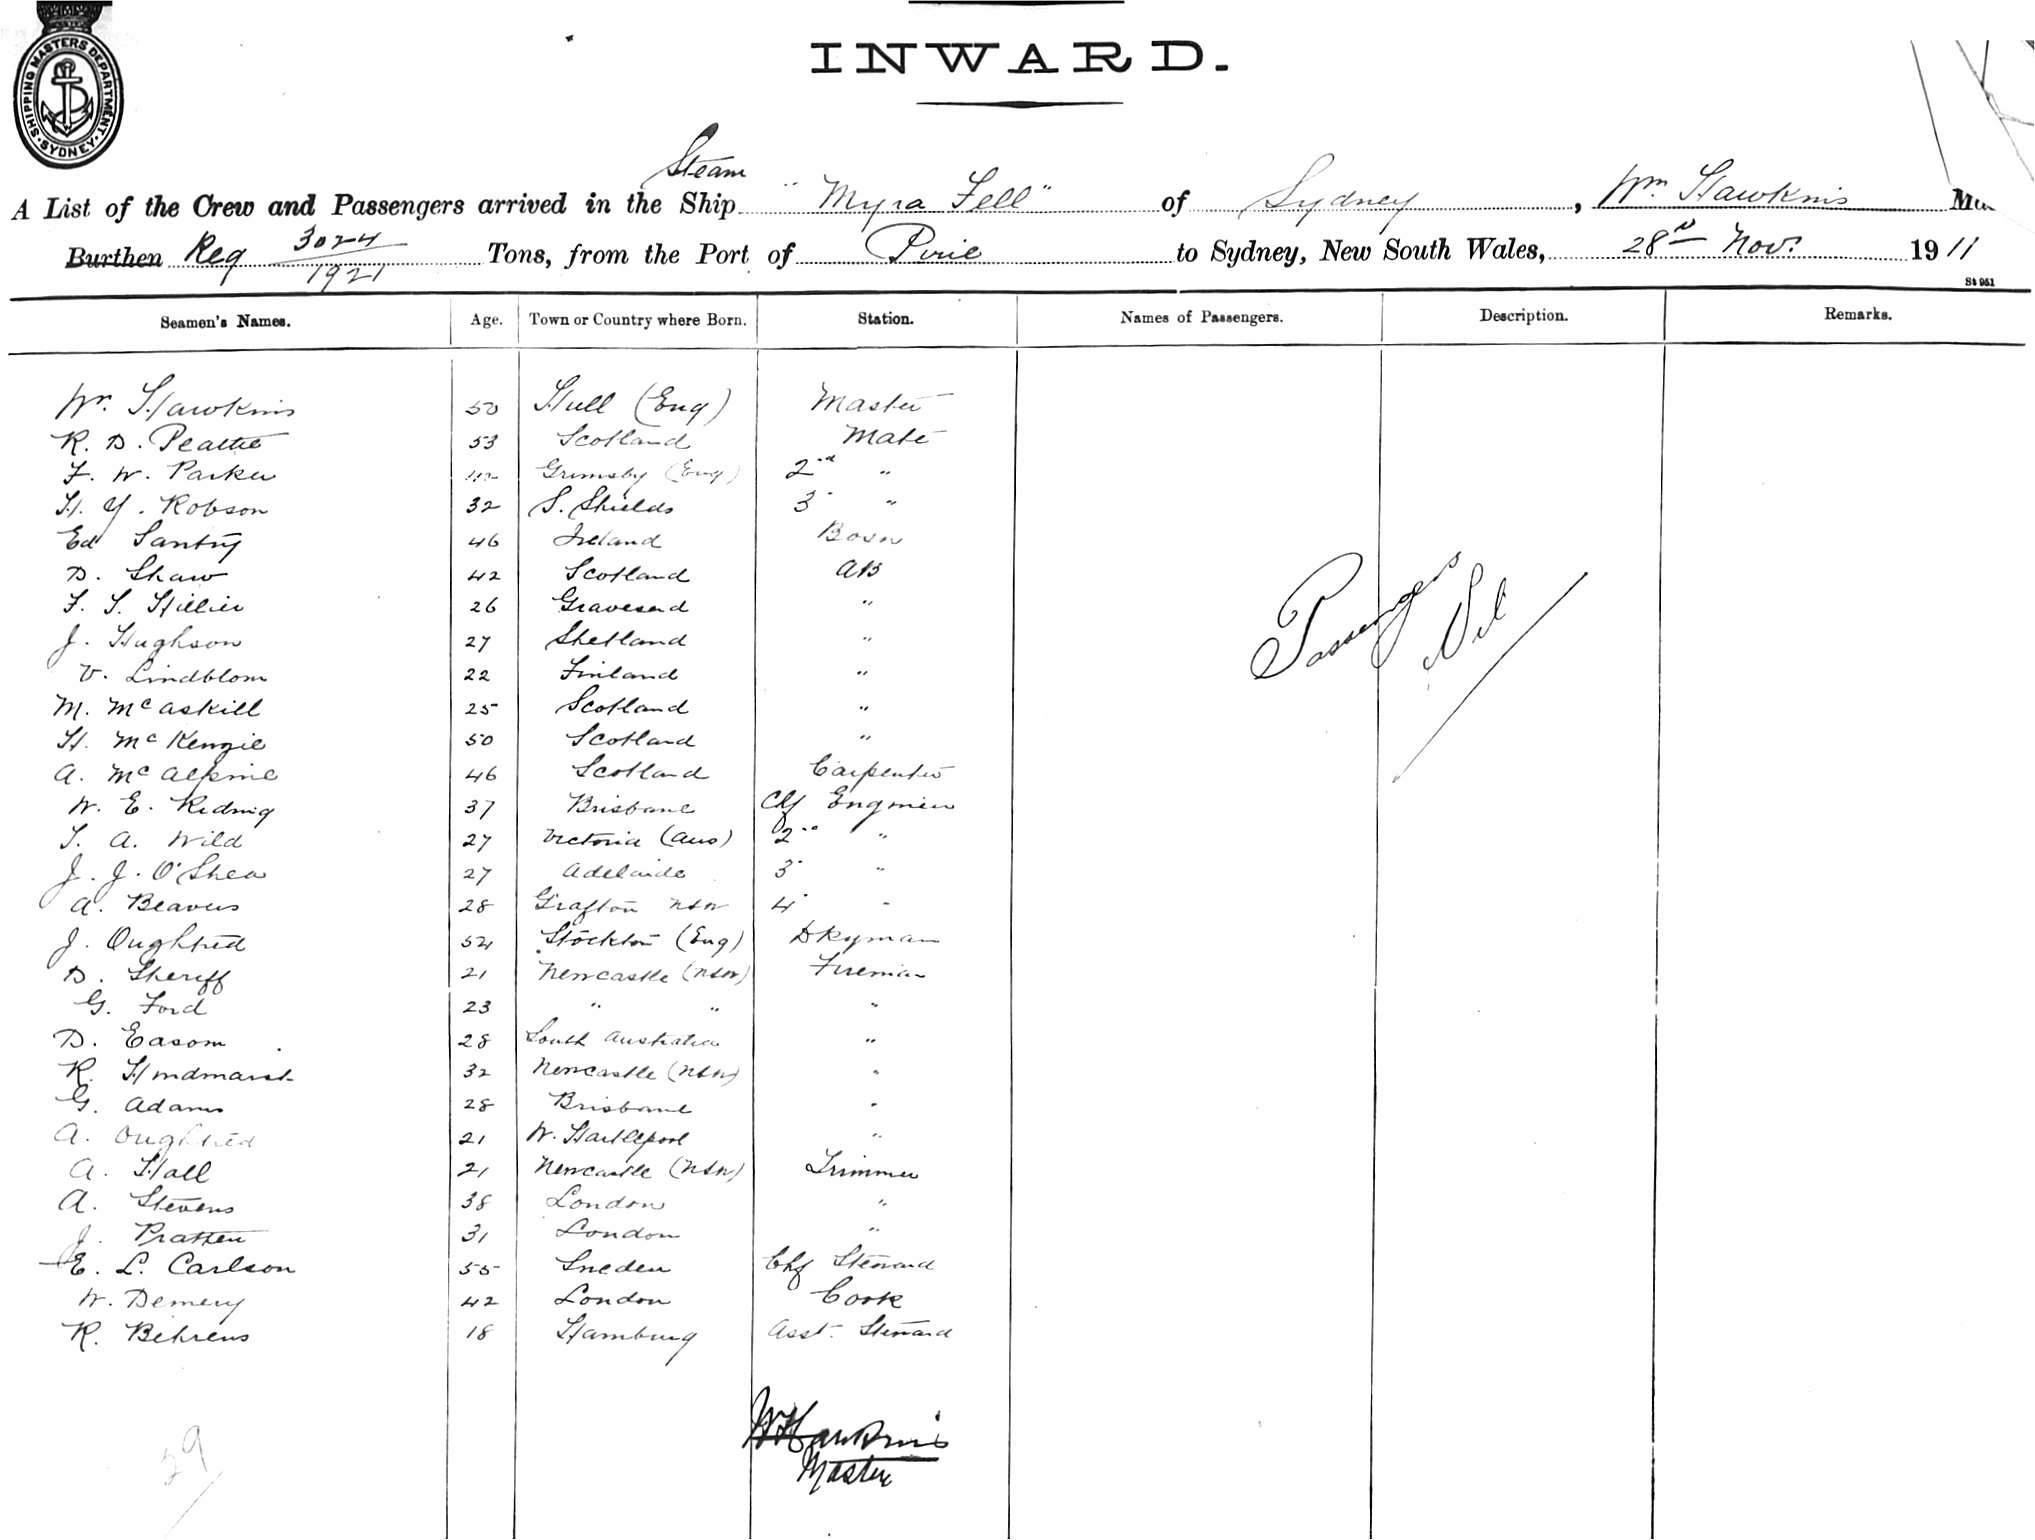 SHIPPING MASTERS DEPARTMENT · SYDNEY ·
INWARD.
Steam
A List of the Crew and Passengers arrived in the Ship "Myra Fell" of Sydney, Wm Hawkins
Burthen Reg 3024/1921 Tons, from the Port of Pirie to Sydney, New South Wales, 28th Nov. 1911
St 951
Seamen's Names. Age. Town or Country where Born. Station. Names of Passengers. Description. Remarks.
Wm. Hawkins 50 Hull (Eng) Master
R. D. Peattie 53 Scotland Mate
F. W. Parker Grimsby (Eng) 2nd "
H. Y. Robson 32 S. Shields 3 "
Ed Santry 46 Ireland Bosn
D. Shaw 42 Scotland AB
F. S. Hillier 26 Gravesend "
J. Hughson 27 Shetland "
V. Lindblom 22 Finland "
M. McAskill 25 Scotland "
H. McKenzie 50 Scotland "
A. McAlpine 46 Scotland Carpenter
W. E. Riding 37 Brisbane Chf Engineer
T. A. Wild 27 Victoria (Aus) 2nd "
J. J. O'Shea 27 Adelaide 3 "
A. Beavers 28 Grafton NSW 4 "
J. Oughtred 52 Stockton (Eng) Dkyman
D. Sheriff 21 Newcastle (NSW) Fireman
G. Ford 23 " " "
D. Easom 28 South Australia "
R. Hindmarsh 32 Newcastle (NSW) "
G. Adams 28 Brisbane "
A. Oughtred 21 W. Hartlepool "
A. Hall 21 Newcastle (NSW) Trimmer
A. Stevens 38 London "
J. Pratten 31 London "
E. L. Carlson 55 Sweden Chf Steward
W. Demery 42 London Cook
R. Behrens 18 Hamburg Asst. Steward
Passengers Nil
W Hawkins
Master
29